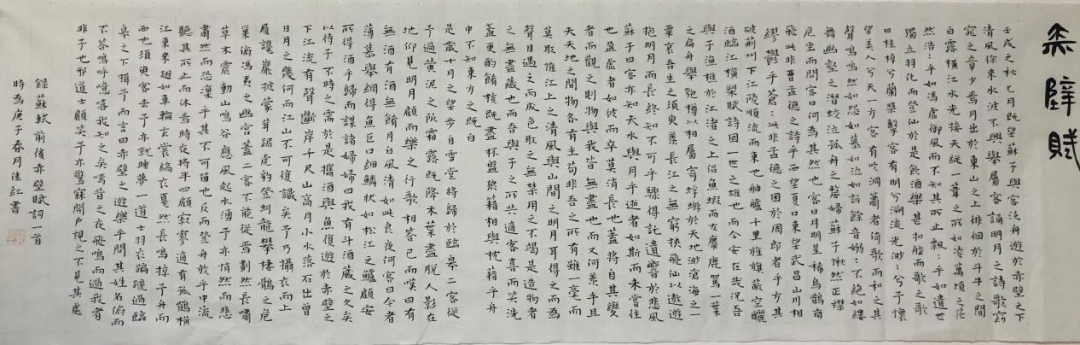 赤壁賦
壬戌之秋七月既望蘇子與客泛舟遊於赤壁之下
清風徐來水波不興舉酒屬客誦明月之詩歌窈
窕之章少焉月出於東山之上徘徊於斗牛之間
白露橫江水光接天縱一葦之所如凌萬頃之茫
然浩〻乎如馮虛御風而不知其所止飄〻乎如遺世
獨立羽化而登仙於是飲酒樂甚扣舷而歌之歌
曰桂棹兮蘭槳擊空明兮溯流光渺〻兮予懷
望美人兮天一方客有吹洞簫者倚歌而和之其
聲嗚嗚然如怨如慕如泣如訴餘音嫋〻不絕如縷
舞幽壑之潛蛟泣孤舟之嫠婦蘇子愀然正襟
危坐而問客曰何為其然也客曰月明星稀烏鵲南
飛此非曹孟德之詩乎西望夏口東望武昌山川相
繆鬱乎蒼〻此非孟德之困於周郎者乎方其
破荊州下江陵順流而東也舳艫千里旌旗蔽空釃
酒臨江橫槊賦詩固一世之雄也而今安在哉況吾
與子漁樵於江渚之上侶魚蝦而友麋鹿駕一葉
之扁舟舉匏樽以相屬寄蜉蝣於天地渺滄海之一
粟哀吾生之須臾羨長江之無窮挾飛仙以遨遊
抱明月而長終知不可乎驟得託遺響於悲風
蘇子曰客亦知夫水與月乎逝者如斯而未嘗往
也盈虛者如彼而卒莫消長也蓋將自其變
者而觀之則物與我皆無盡也而又何羨乎且
夫天地之間物各有主苟非吾之所有雖一毫而
莫取惟江上之清風與山間之明月耳得之而為
聲目遇之而成色取之無禁用之不竭是造物者
之無盡藏也而吾與子之所共適客喜而笑洗
盞更酌餚核既盡杯盤狼藉相與枕藉乎舟
中不知東方之既白
是歲十月之望步自雪堂將歸於臨皋二客從
予過黃泥之阪霜露既降木葉盡脫人影在
地仰見明月顧而樂之行歌相答已而嘆曰有
客無酒有酒無餚月白風清如此良夜何客曰今者
薄暮舉網得魚巨口細鱗狀如松江之鱸顧安
所得酒乎歸而謀諸婦婦曰我有斗酒藏之久矣
以待子不時之需於是攜酒與魚復遊於赤壁之
下江流有聲斷岸千尺山高月小水落石出曾
日月之幾何而江山不可復識矣予乃攝衣而上
履巉巖披蒙茸踞虎豹登虯龍攀棲鶻之危
巢俯馮夷之幽宮蓋二客不能從焉劃然長嘯
草木震動山鳴谷應風起水湧予亦悄然而悲
肅然而恐凜乎其不可留也反而登舟放乎中流
聽其所止而休焉時夜將半四顧寂寥適有孤鶴橫
江東來翅如車輪玄裳縞衣戛然長鳴掠予舟而
西也須臾客去予亦就睡夢一道士羽衣蹁躚過臨
皋之下揖予而言曰赤壁之遊樂乎問其姓名俯而
不答嗚呼噫嘻我知之矣疇昔之夜飛鳴而過我者
非子也邪道士顧笑予亦驚寤開戶視之不見其處
錄蘇軾前後赤壁賦詞一首
時為庚子春月佳紅書